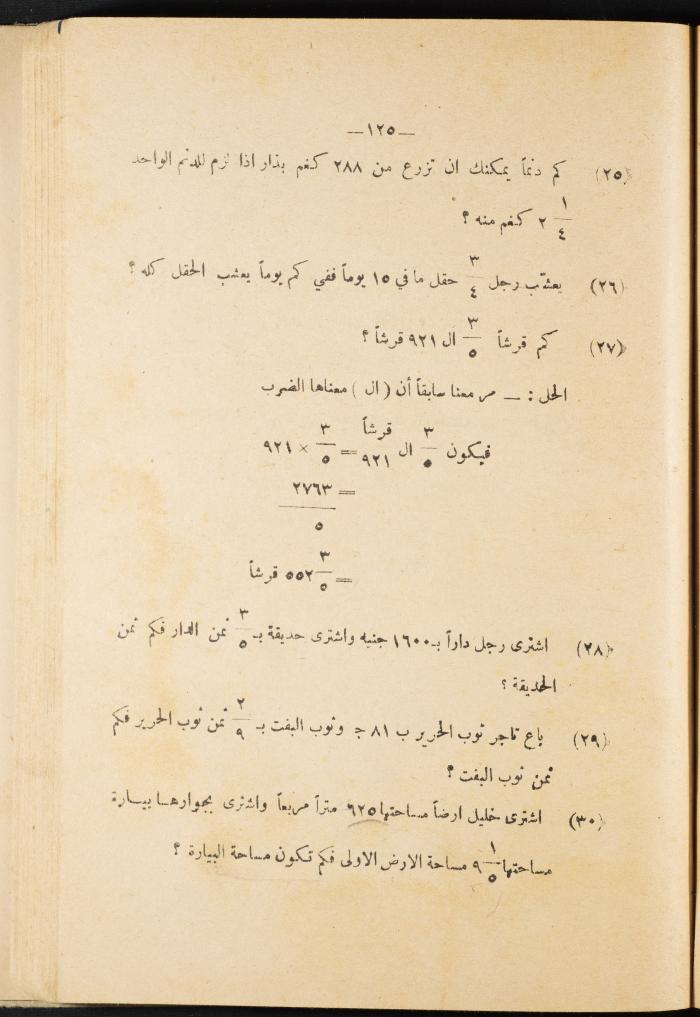 —١٢٥—
(٢٥) كم دنماً يمكنك ان تزرع من ٢٨٨ كغم بذار اذا لزم للدنم الواحد
٢ ١/٤ كغم منه ؟
(٢٦) يعشّب رجل ٣/٤ حقل ما في ١٥ يوماً ففي كم يوماً يعشب الحقل كله ؟
(٢٧) كم قرشاً ٣/٥ ال ٩٢١ قرشاً ؟
الحل : — مر معنا سابقاً أن ( ال ) معناها الضرب
فيكون ٣/٥ ال ٩٢١ قرشاً = ٣/٥ × ٩٢١
= ٢٧٦٣/٥
= ٥٥٢ ٣/٥ قرشاً
(٢٨) اشترى رجل داراً بـ ١٦٠٠ جنيه واشترى حديقة بـ ٣/٥ ثمن الدار فكم ثمن
الحديقة ؟
(٢٩) باع تاجر ثوب الحرير ب ٨١ ج وثوب البفت بـ ٢/٩ ثمن ثوب الحرير فكم
ثمن ثوب البفت ؟
(٣٠) اشترى خليل ارضاً مساحتها ٦٢٥ متراً مربعاً واشترى بجوارها بيارة
مساحتها ٩ ١/٥ مساحة الارض الاولى فكم تكون مساحة البيارة ؟